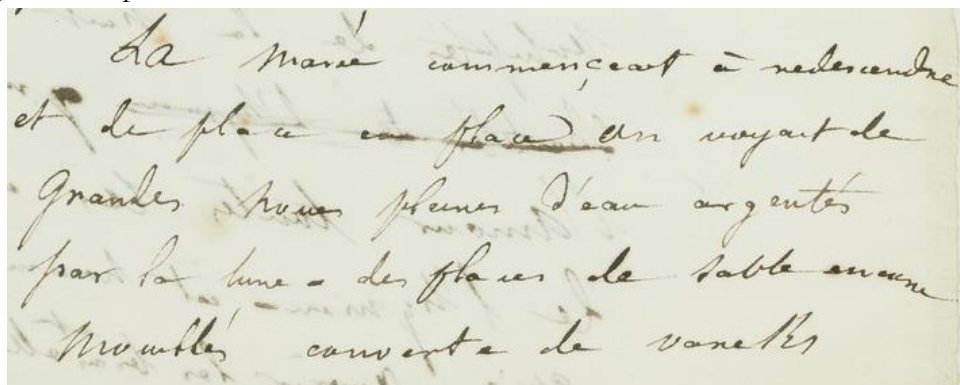 La marée commençeait à redescendre
et de place en place on voyait de
Grandes pleines d'eau argentés
par la lune - des places de sable encore
Mouillés couverte de varechs